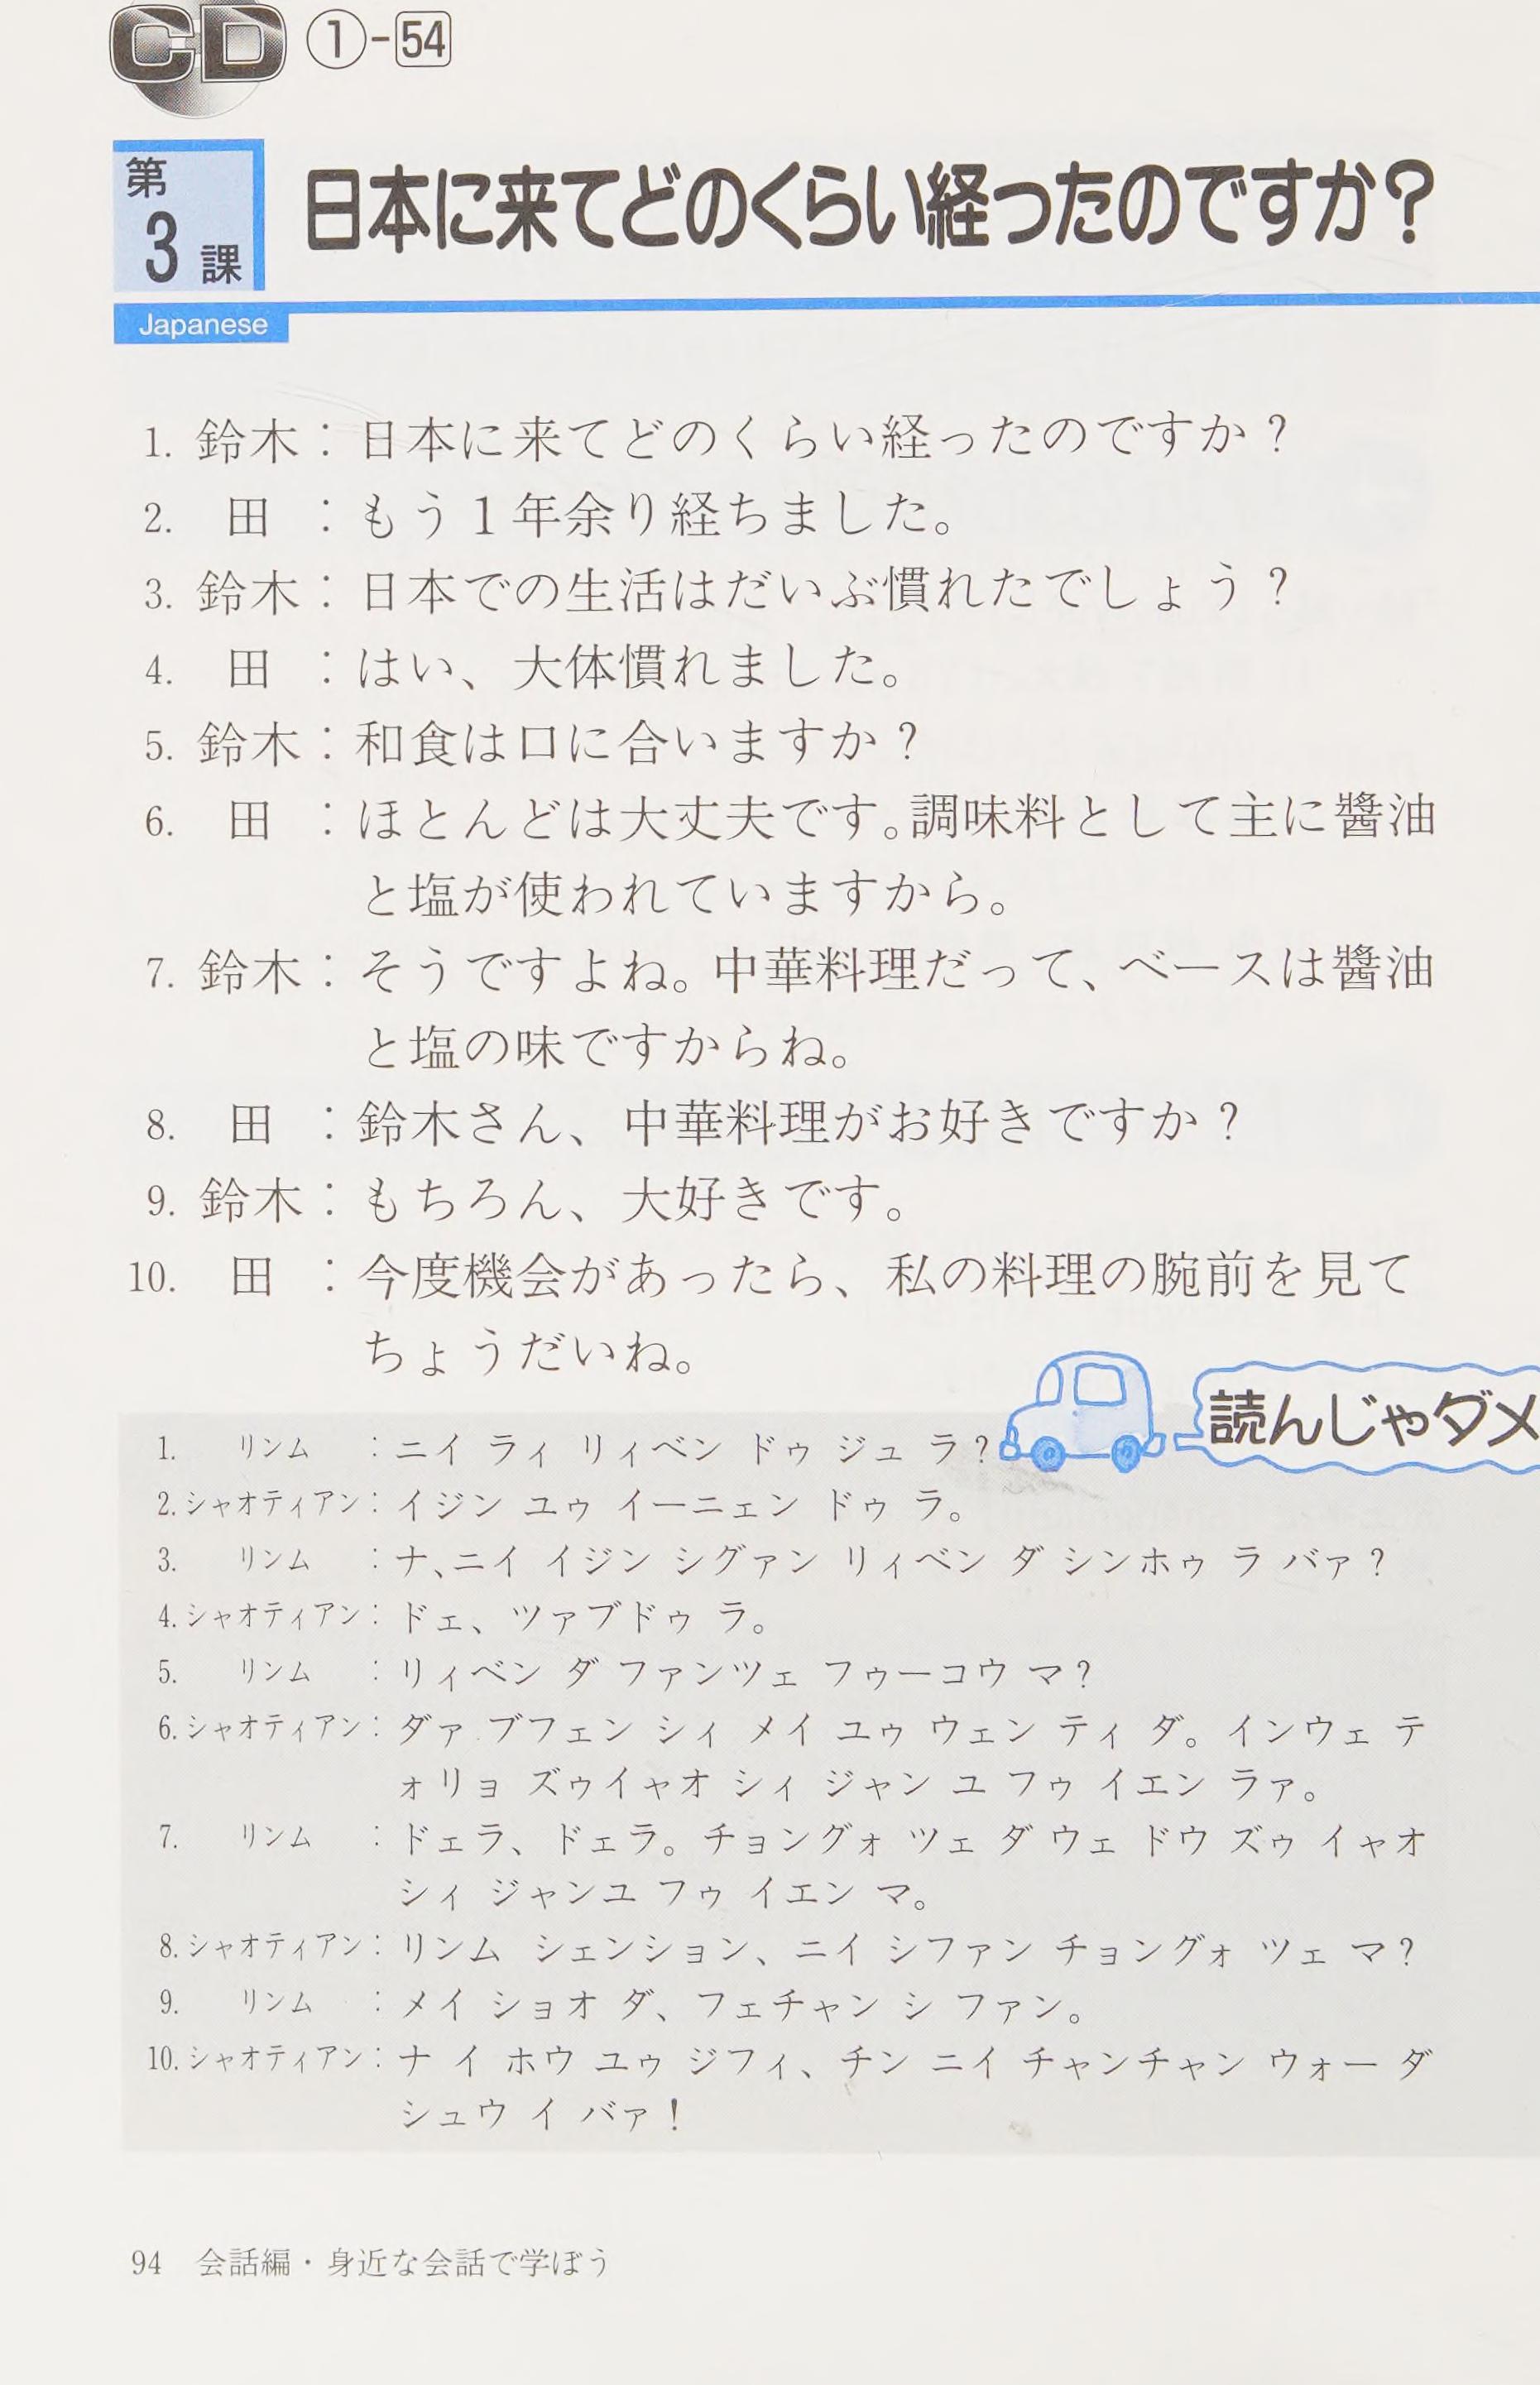 CD ①-54
第3課 日本に来てどのくらい経ったのですか？
Japanese
1. 鈴木：日本に来てどのくらい経ったのですか？
2. 田：もう１年余り経ちました。
3. 鈴木：日本での生活はだいぶ慣れたでしょう？
4. 田：はい、大体慣れました。
5. 鈴木：和食は口に合いますか？
6. 田：ほとんどは大丈夫です。調味料として主に醬油
と塩が使われていますから。
7. 鈴木：そうですよね。中華料理だって、ベースは醬油
と塩の味ですからね。
8. 田：鈴木さん、中華料理がお好きですか？
9. 鈴木：もちろん、大好きです。
10. 田：今度機会があったら、私の料理の腕前を見て
ちょうだいね。
読んじゃダメ
1. リンム：ニイ ライ リィベン ドゥ ジュ ラ？
2. シャオティアン：イジン ユゥ イーニェン ドゥ ラ。
3. リンム：ナ､ニイ イジン シグァン リィベン ダ シンホゥ ラ バァ？
4. シャオティアン：ドェ、ツァブドゥ ラ。
5. リンム：リィベン ダ ファンツェ フゥーコウ マ？
6. シャオティアン：ダァ ブフェン シィ メイ ユゥ ウェン ティ ダ。インウェ テ
ォリョ ズゥイャオ シィ ジャン ユ フゥ イエン ラァ。
7. リンム：ドェラ、ドェラ。チョングォ ツェ ダ ウェ ドウ ズゥ イャオ
シィ ジャンユ フゥ イエン マ。
8. シャオティアン：リンム シェンション、ニイ シファン チョングォ ツェ マ？
9. リンム：メイ ショオ ダ、フェチャン シ ファン。
10. シャオティアン：ナ イ ホウ ユゥ ジフィ、チン ニイ チャンチャン ウォー ダ
シュウ イ バァ！
94 会話編・身近な会話で学ぼう